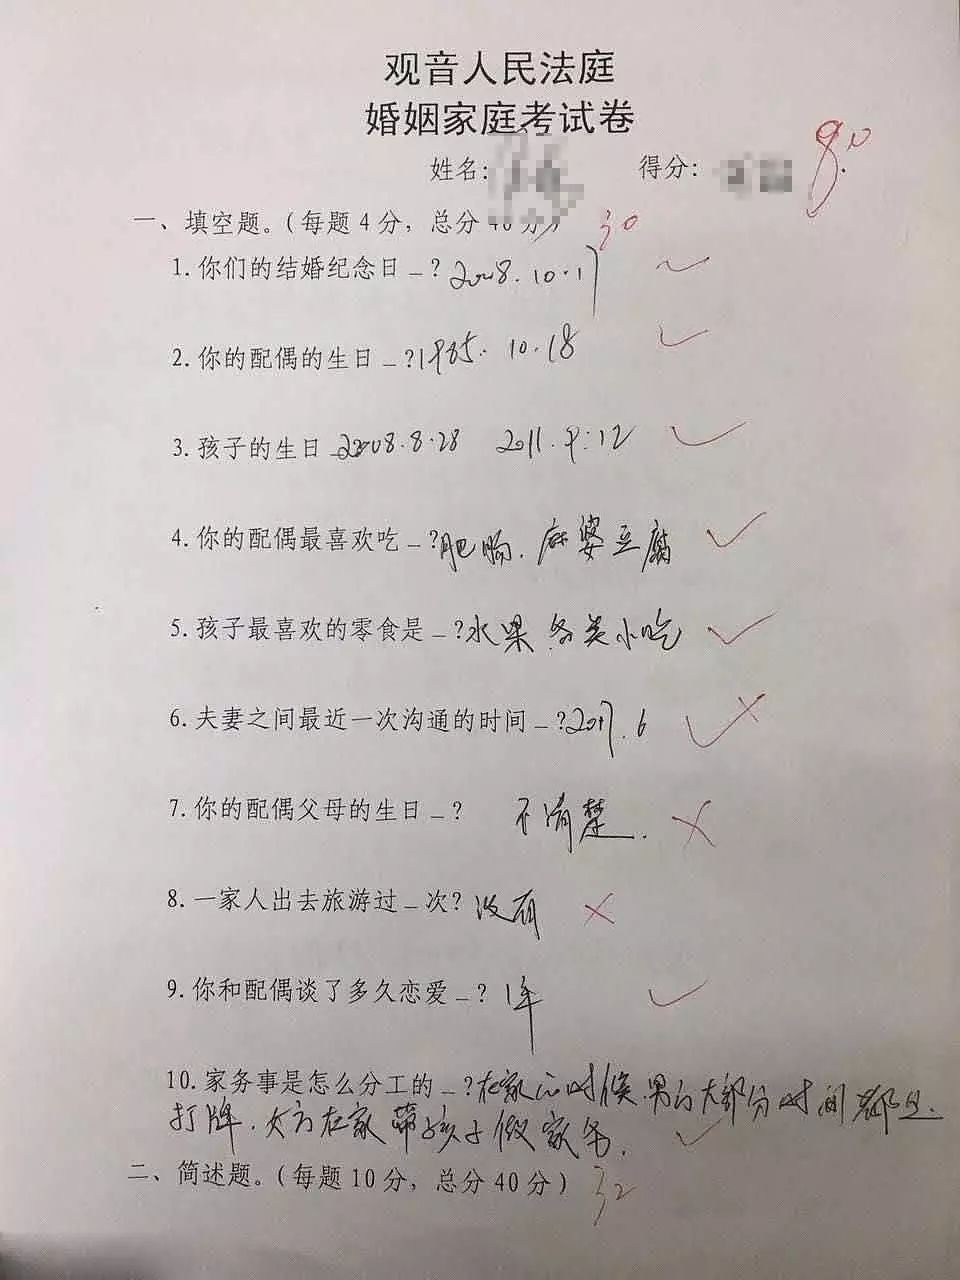 观音人民法庭
婚姻家庭考试卷
姓名: 得分: 80
一、填空题。(每题4分，总分40分) 30
1.你们的结婚纪念日_?2008.10.17
2.你的配偶的生日_?1985.10.18
3.孩子的生日_2008.8.28 2011.9.12
4.你的配偶最喜欢吃_?肥肠.麻婆豆腐
5.孩子最喜欢的零食是_?水果 各类小吃
6.夫妻之间最近一次沟通的时间_?2017.6
7.你的配偶父母的生日_? 不清楚.
8.一家人出去旅游过_次?没有
9.你和配偶谈了多久恋爱_? 1年
10.家务事是怎么分工的_?在家的时候,男的大部分时间都是.
打牌.女方在家带孩子做家务.
二、简述题。(每题10分，总分40分) 32